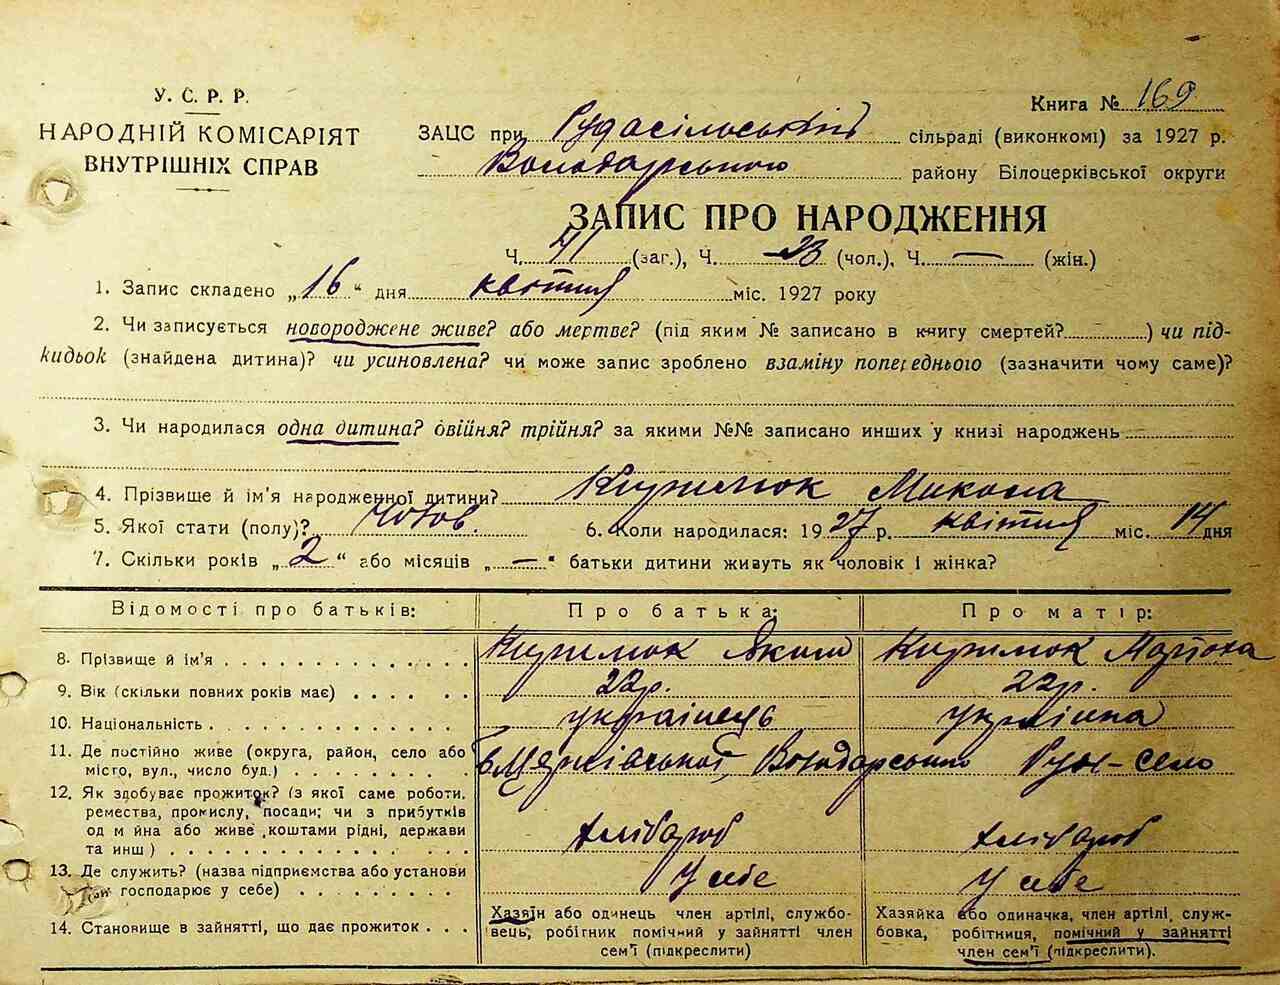 У. С. Р. Р.
НАРОДНІЙ КОМІСАРІЯТ
ВНУТРІШНІХ СПРАВ
Книга № 169
ЗАЦС при Рудасільській сільраді (виконкомі) за 1927 р.
Володарського району Білоцерківської округи
ЗАПИС ПРО НАРОДЖЕННЯ
Ч. 41 (заг.), Ч. 23 (чол.), Ч. — (жін.)
1. Запис складено „16“ дня квітня міс. 1927 року
2. Чи записується новороджене живе? або мертве? (під яким № записано в книгу смертей?) чи під-
кидьок (знайдена дитина)? чи усиновлена? чи може запис зроблено взаміну попереднього (зазначити чому саме)?
3. Чи народилася одна дитина? двійня? трійня? за якими №№ записано инших у книзі народжень
4. Прізвище й ім'я народженної дитини? Кирилюк Микола
5. Якої стати (полу)? Чолов. 6. Коли народилася: 1927 р. квітня міс. 14 дня
7. Скільки років „2“ або місяців „—“ батьки дитини живуть як чоловік і жінка?
Відомості про батьків: Про батька: Про матір:
8. Прізвище й ім'я Кирилюк Яким Кирилюк
9. Вік (скільки повних років має) 22р. 22р.
10. Національність українець українка
11. Де постійно живе (округа, район, село або
місто, вул., число буд.) Б Церківської, Володарського Руда-село
12. Як здобуває прожиток? (з якої саме роботи,
ремества, промислу, посади; чи з прибутків
од м йна або живе коштами рідні, держави
та инш) Хлібороб Хлібороб
13. Де служить? (назва підприємства або установи
господарює у себе) У себе У себе
14. Становище в зайнятті, що дає прожиток
Хазяїн або одинець член артілі, службо-
вець, робігник помічний у зайнятті член
сем'ї (підкреслити)
Хазяйка або одиначка, член артілі, служ-
бовка, робітниця, помічний у зайнятті
член сем'ї (підкреслити).